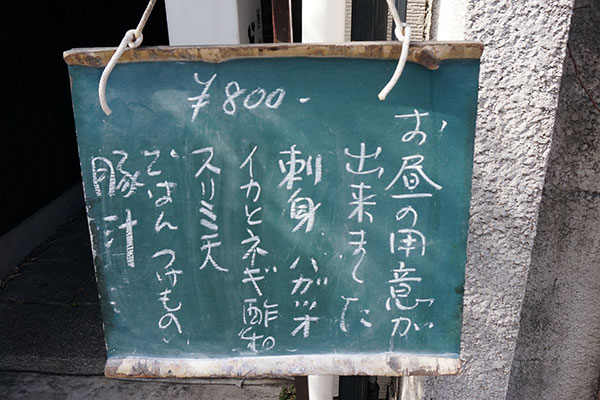 お昼の用意が
出来ました
刺身 ハガツオ
イカとネギ酢物
スリミ天
ごはん つけもの
豚汁
¥800-